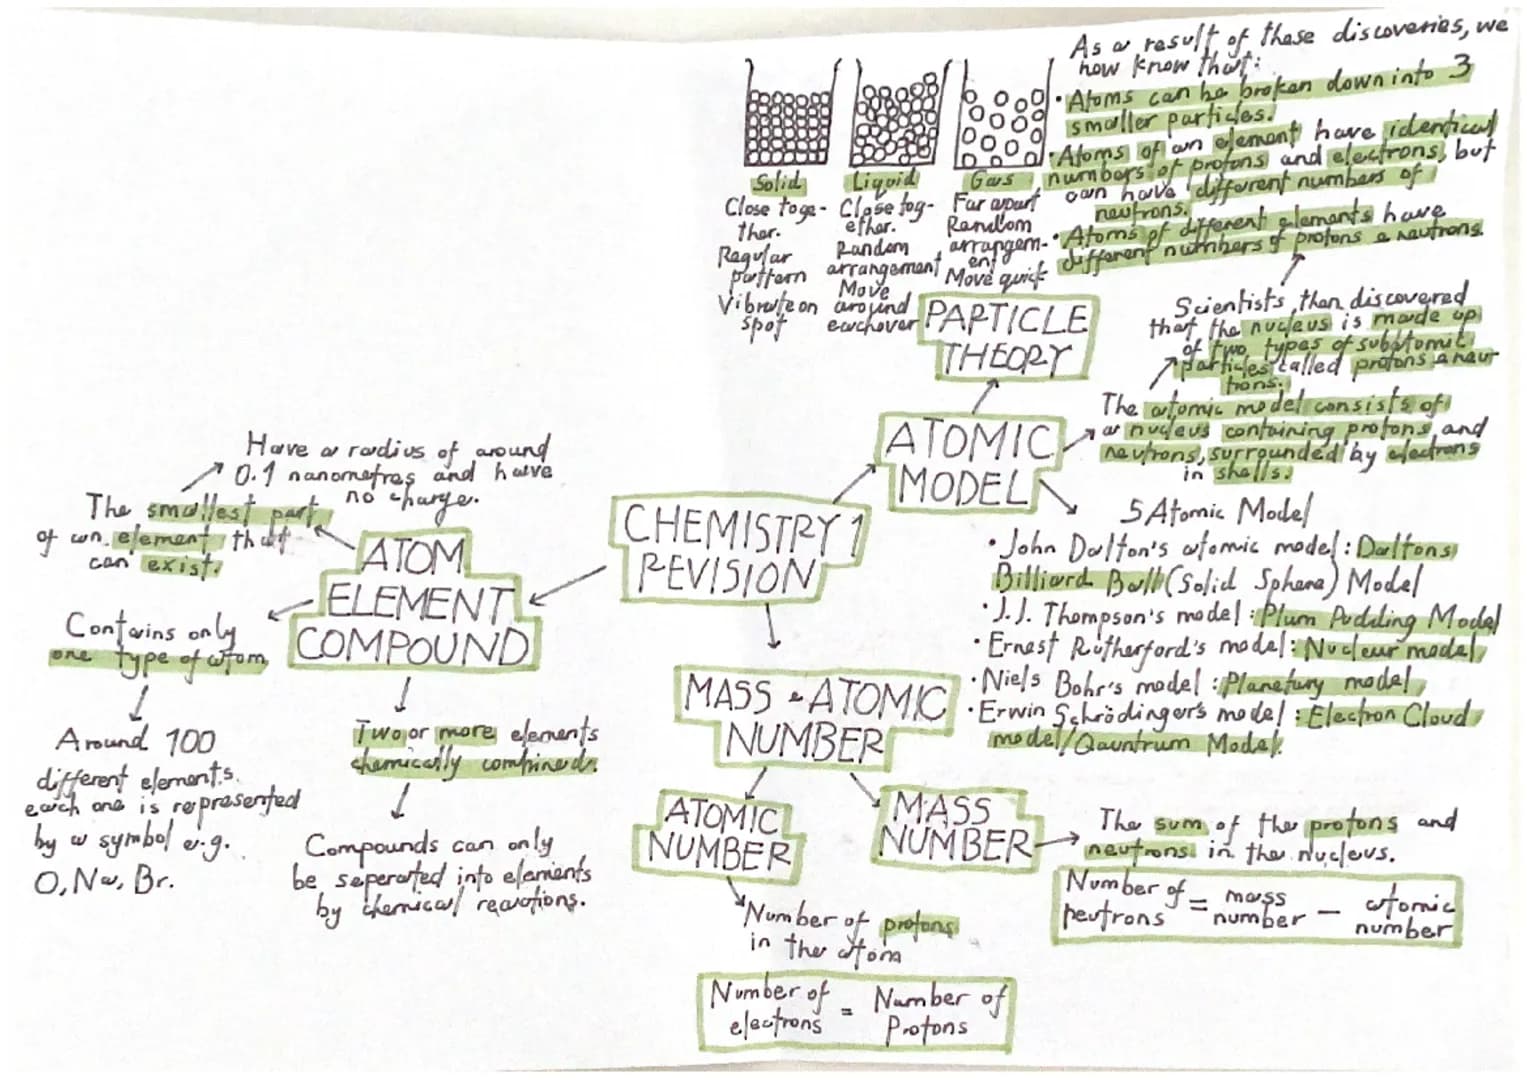 CHEMISTRY 1
REVISION
ATOMIC
MODEL
PARTICLE
THEORY
Solid
Close toge-
ther.
Regular
pattern
Vibrate on
spot
Liquid
Close tog-
ether.
Random
arrangement
Move
around
eachover
Gas
Far apart
Random
arrangem-
ent
Move quick
As a result of these discoveries, we
now know that:
• Atoms can be broken down into 3
smaller particles.
• Atoms of an element have identical
numbers of protons and electrons, but
can have different numbers of
neutrons.
• Atoms of different elements have
different numbers of protons & neutrons.
Scientists then discovered
that the nucleus is made up
of two types of subatomic
particles called protons & neu-
trons.
The atomic model consists of
a nucleus containing protons and
neutrons, surrounded by electrons
in shells.
5 Atomic Model
• John Dalton's atomic model: Daltons
Billiard Ball (Solid Sphere) Model
• J.J. Thompson's model: Plum Pudding Model
• Ernest Rutherford's model: Nuclear model
• Niels Bohr's model: Planetary model
• Erwin Schrödinger's model: Electron Cloud
model/Qauntrum Model.
ATOM
ELEMENT
COMPOUND
The smallest part
of an element that
can exist.
Have a radius of around
0.1 nanometres and have
no charge.
Contains only
one type of atom
Around 100
different elements.
each one is represented
by a symbol e.g.
O, Na, Br.
Two or more elements
chemically combined.
Compounds can only
be seperated into elements
by chemical reactions.
MASS & ATOMIC
NUMBER
ATOMIC
NUMBER
Number of protons
in the atom
Number of electrons = Number of Protons
MASS
NUMBER
The sum of the protons and
neutrons in the nucleus.
Number of neutrons = mass number - atomic number